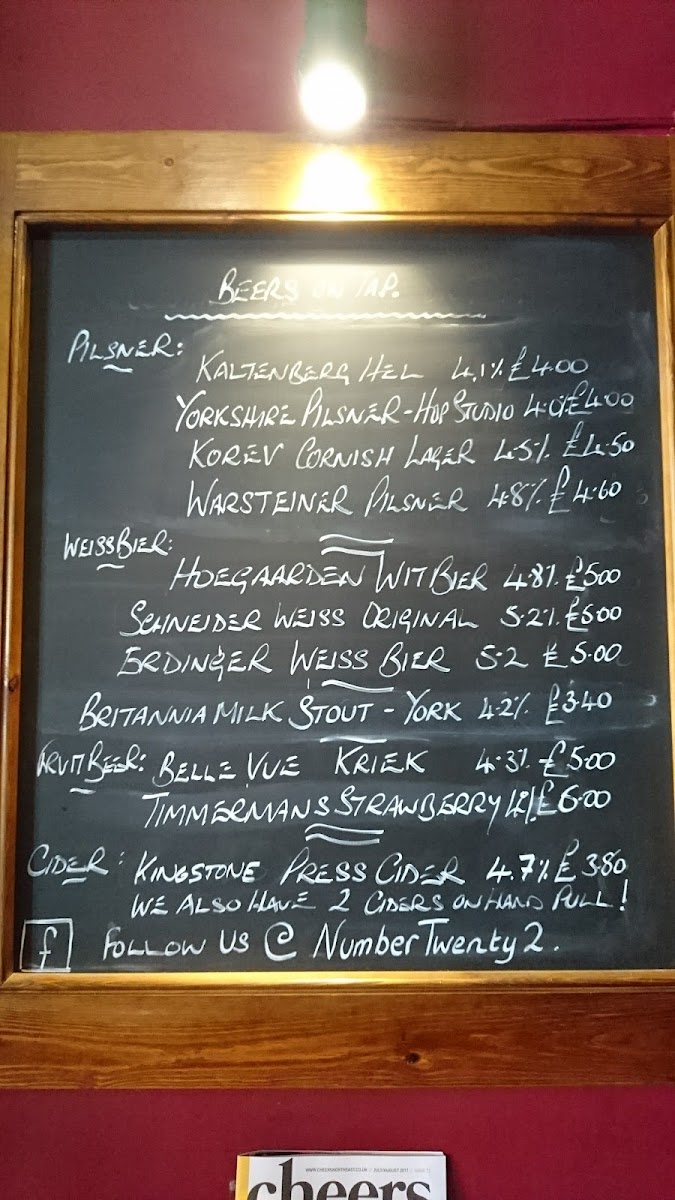 BEERS ON TAP.
PILSNER:
KALTENBERG HEL 4.1% £4.00
YORKSHIRE PILSNER-HOP STUDIO 4.0% £4.00
KOREV CORNISH LAGER 4.5% £4.50
WARSTEINER PILSNER 4.8% £4.60
WEISSBIER:
HOEGAARDEN WITBIER 4.8% £5.00
SCHNEIDER WEISS ORIGINAL 5.2% £5.00
ERDINGER WEISS BIER 5.2 £5.00
BRITANNIA MILK STOUT - YORK 4.2% £3.40
FRUITBEER: BELLE VUE KRIEK 4.3% £5.00
TIMMERMANS STRAWBERRY £6.00
CIDER: KINGSTONE PRESS CIDER 4.7% £3.80
WE ALSO HAVE 2 CIDERS ON HAND PULL!
f FOLLOW US @ NumberTwenty2.
WWW.CHEERSNORTHEAST.CO.UK // JULY/AUGUST 2017 //
cheers